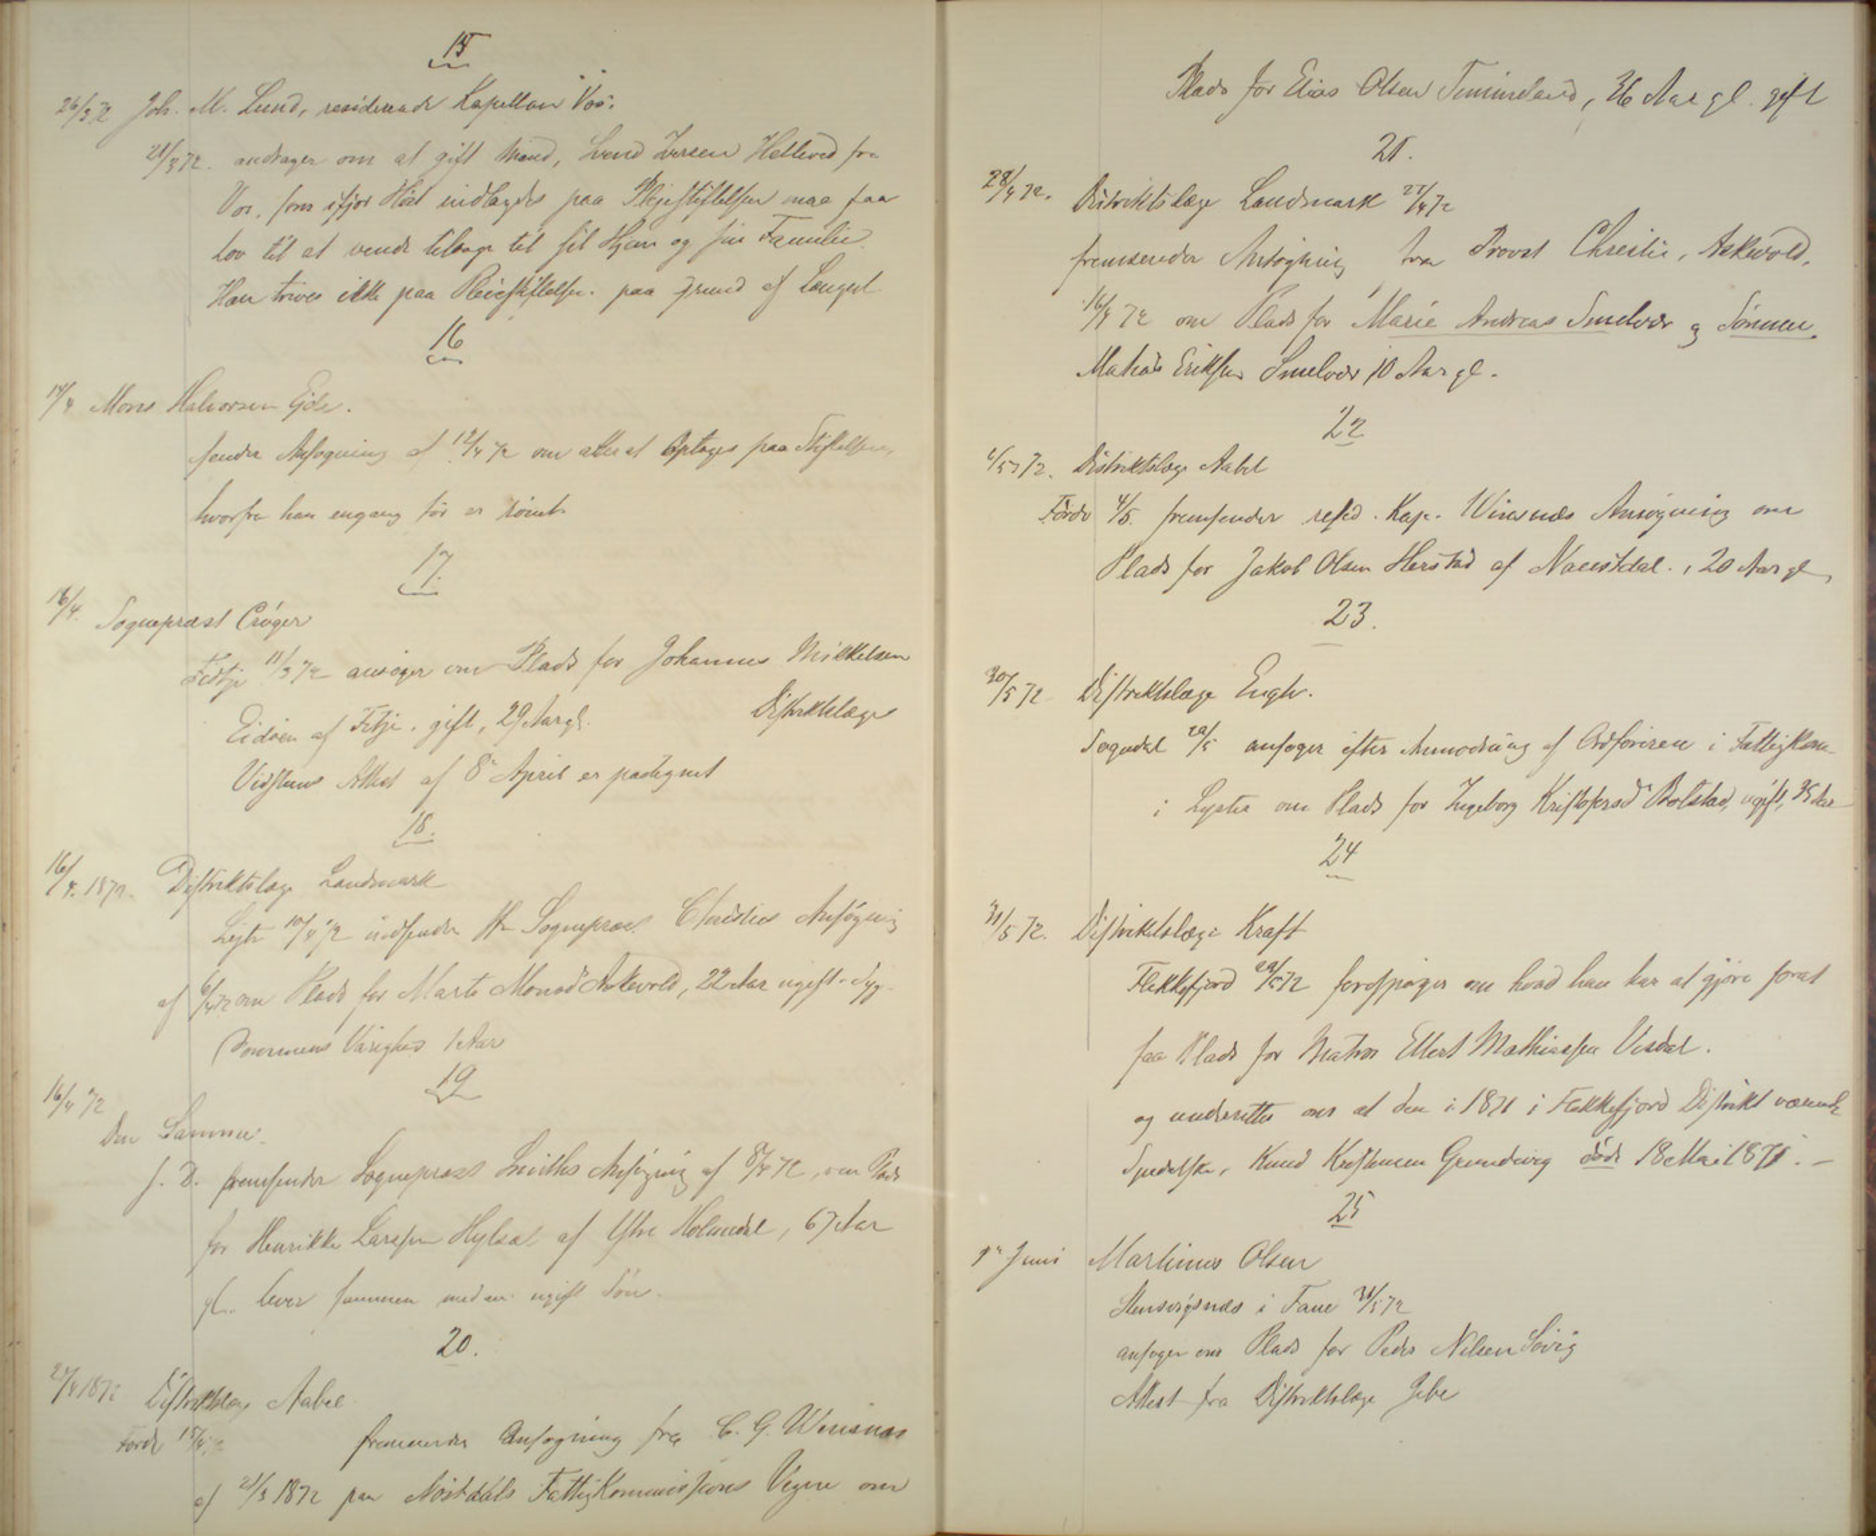 15
26/3 72 Joh. M. Lund, residerende Kapellan Vos.
21/3 72. andrager om at gift Mand, Svend Iversen Helleved fra
Vos, som ifjor Höst indlagdes paa Plejestiftelsen maa faa
lov til at vende tilbage til sit Hjem og sin Familie.
Han trives ikke paa Pleiestiftelsen paa Grund af Længsel
16
14/4 Mons Halvorsen Gjde.
sender Ansøgning af 12/4 72 om atter at optages paa Stiftelsen,
hvorfra han engang för er römt.
17.
16/4. Sognepræst Cröger
Fitje 11/3 72 ansöger om Plads for Johannes Mikkelsen
Eidöen af Fitje, gift, 29 Aar gl. Distriktslæge
Attest af 8de April er paategnet
18.
16/4. 1872. Distriktslæge Landmark
10/4 72 indsender Hr Sognepræst Christies Ansögning
af 6/4 72 om Plads for Marte Monsd Askevold, 22 Aar ugift. Syg-
dommens Varighed 1 Aar
19
16/4 72
Den Samme.
s. D. fremsender Sognepræst Smiths Ansögning af 8/4 72, om Plads
for Henrikke Larssen Hjlsæt af Ytre Holmedal, 67 Aar
gl. lever sammen med en ugift Sön.
20.
24/4 1872 Distriktslæge Aabel
Förde 15/4 72 fremsender Ansøgning fra C. G. Winsnæs
af 21/3 1872 paa Nöstdals Fattigkommissions Vegne om
Plads for Elias Olsen Timinland, 36 Aar gl. gift
21.
28/4 72. Distriktslæge Landmark 22/4 72
fremsender Ansögning fra Provst Christie, Askvold,
16/4 72 om Plads for Marie Andreas Smelvær og Sönnen
Mathias Eriksen Smelvær 10 Aar gl.
22
6/5 72. Distriktslæge Aabel
Förde 4/5. fremsender resid. Kap. Winsnæs Ansögning om
Plads for Jakob Olsen Herstad af Naustdal, 20 Aar gl,
23.
30/5 72 Distriktslæge Engh.
Sogndal 20/5 ansøger efter Anmodning af Ordföreren i Fattigkom-
i Lyster om Plads for Ingeborg Kristofersd Bolstad, ugift, 35 Aar
24
31/5 72. Distriktslæge Kraft
Flekkefjord 29/5 72 forespörger om hvad han har at gjöre forat
faa Plads for Matros Ellert Mathiassen Vesdal.
og underretter om at den i 1871 i Flekkefjord Distrikt værende
Spedalske, Knud Kristensen Grundevig döde 18 Mai 1871. –
25
1e Juni Martinus Olsen
Stensvigsnæs i Fane 31/5 72
ansøger om Plads for Peder Nilsen Sövig
Attest fra Distriktslæge Jebe